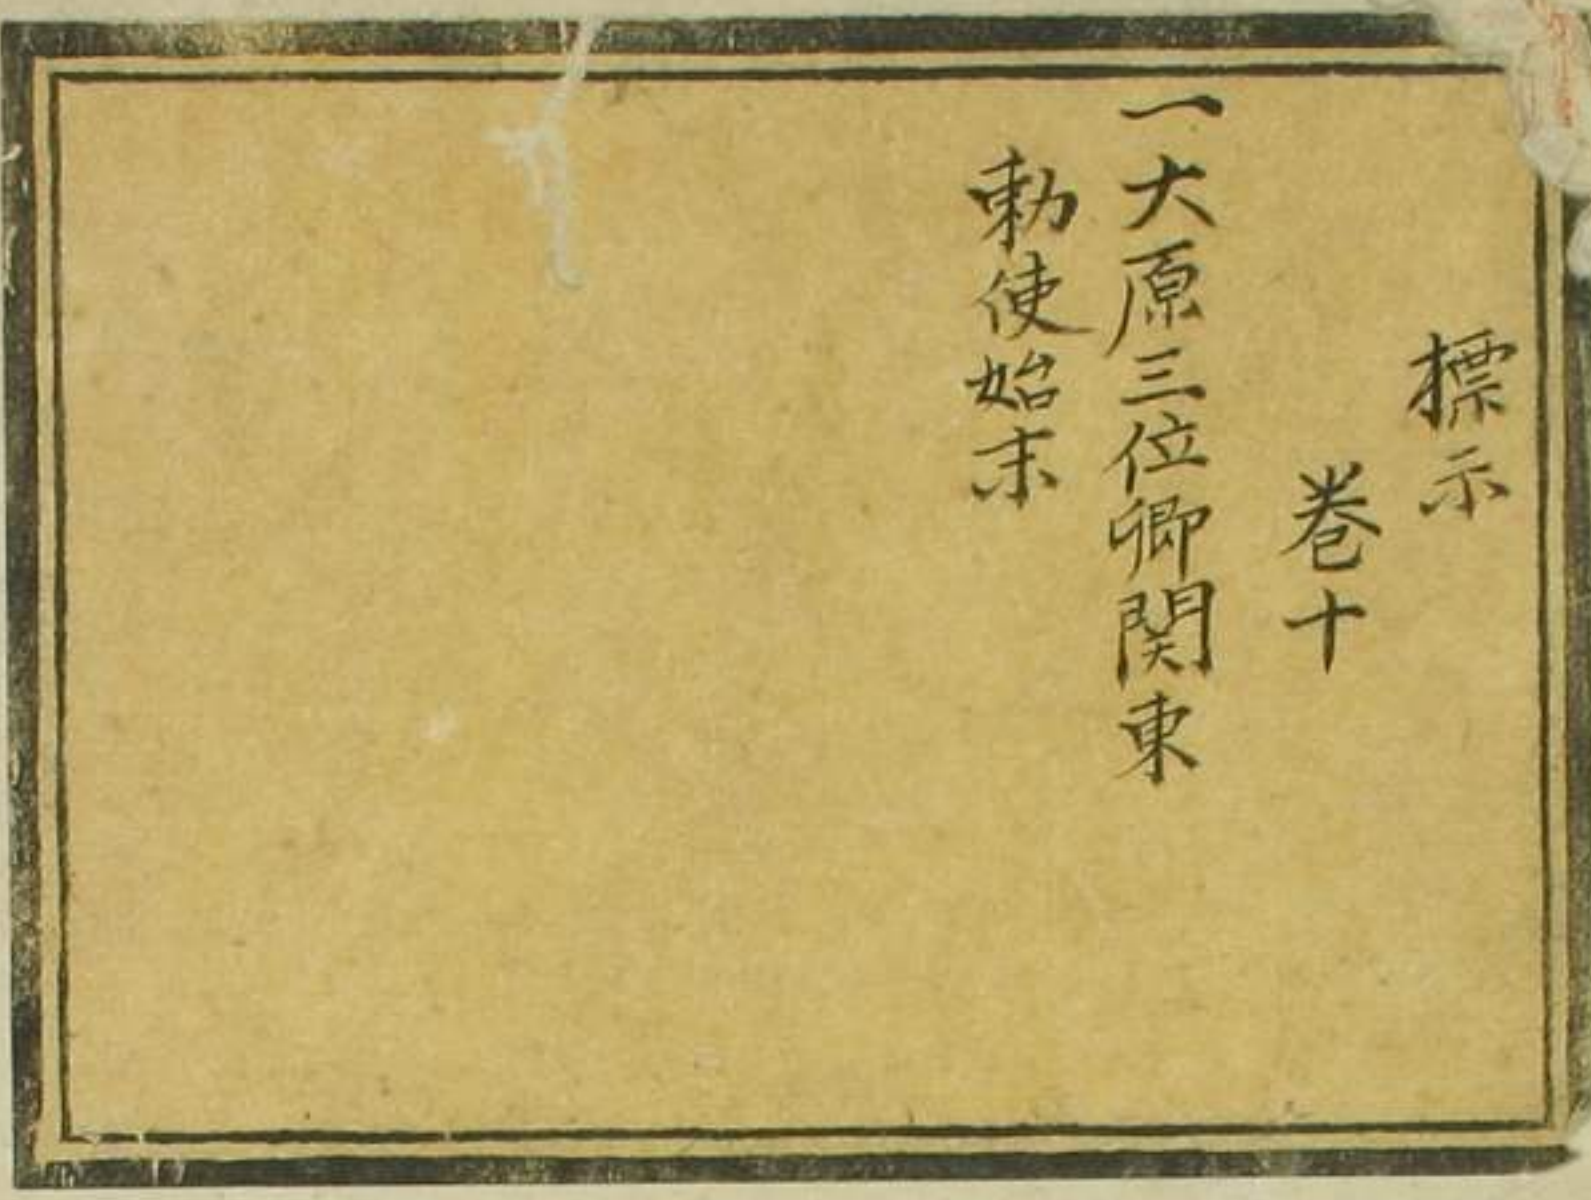 標示
巻十
一大原三位卿関東
勅使始末